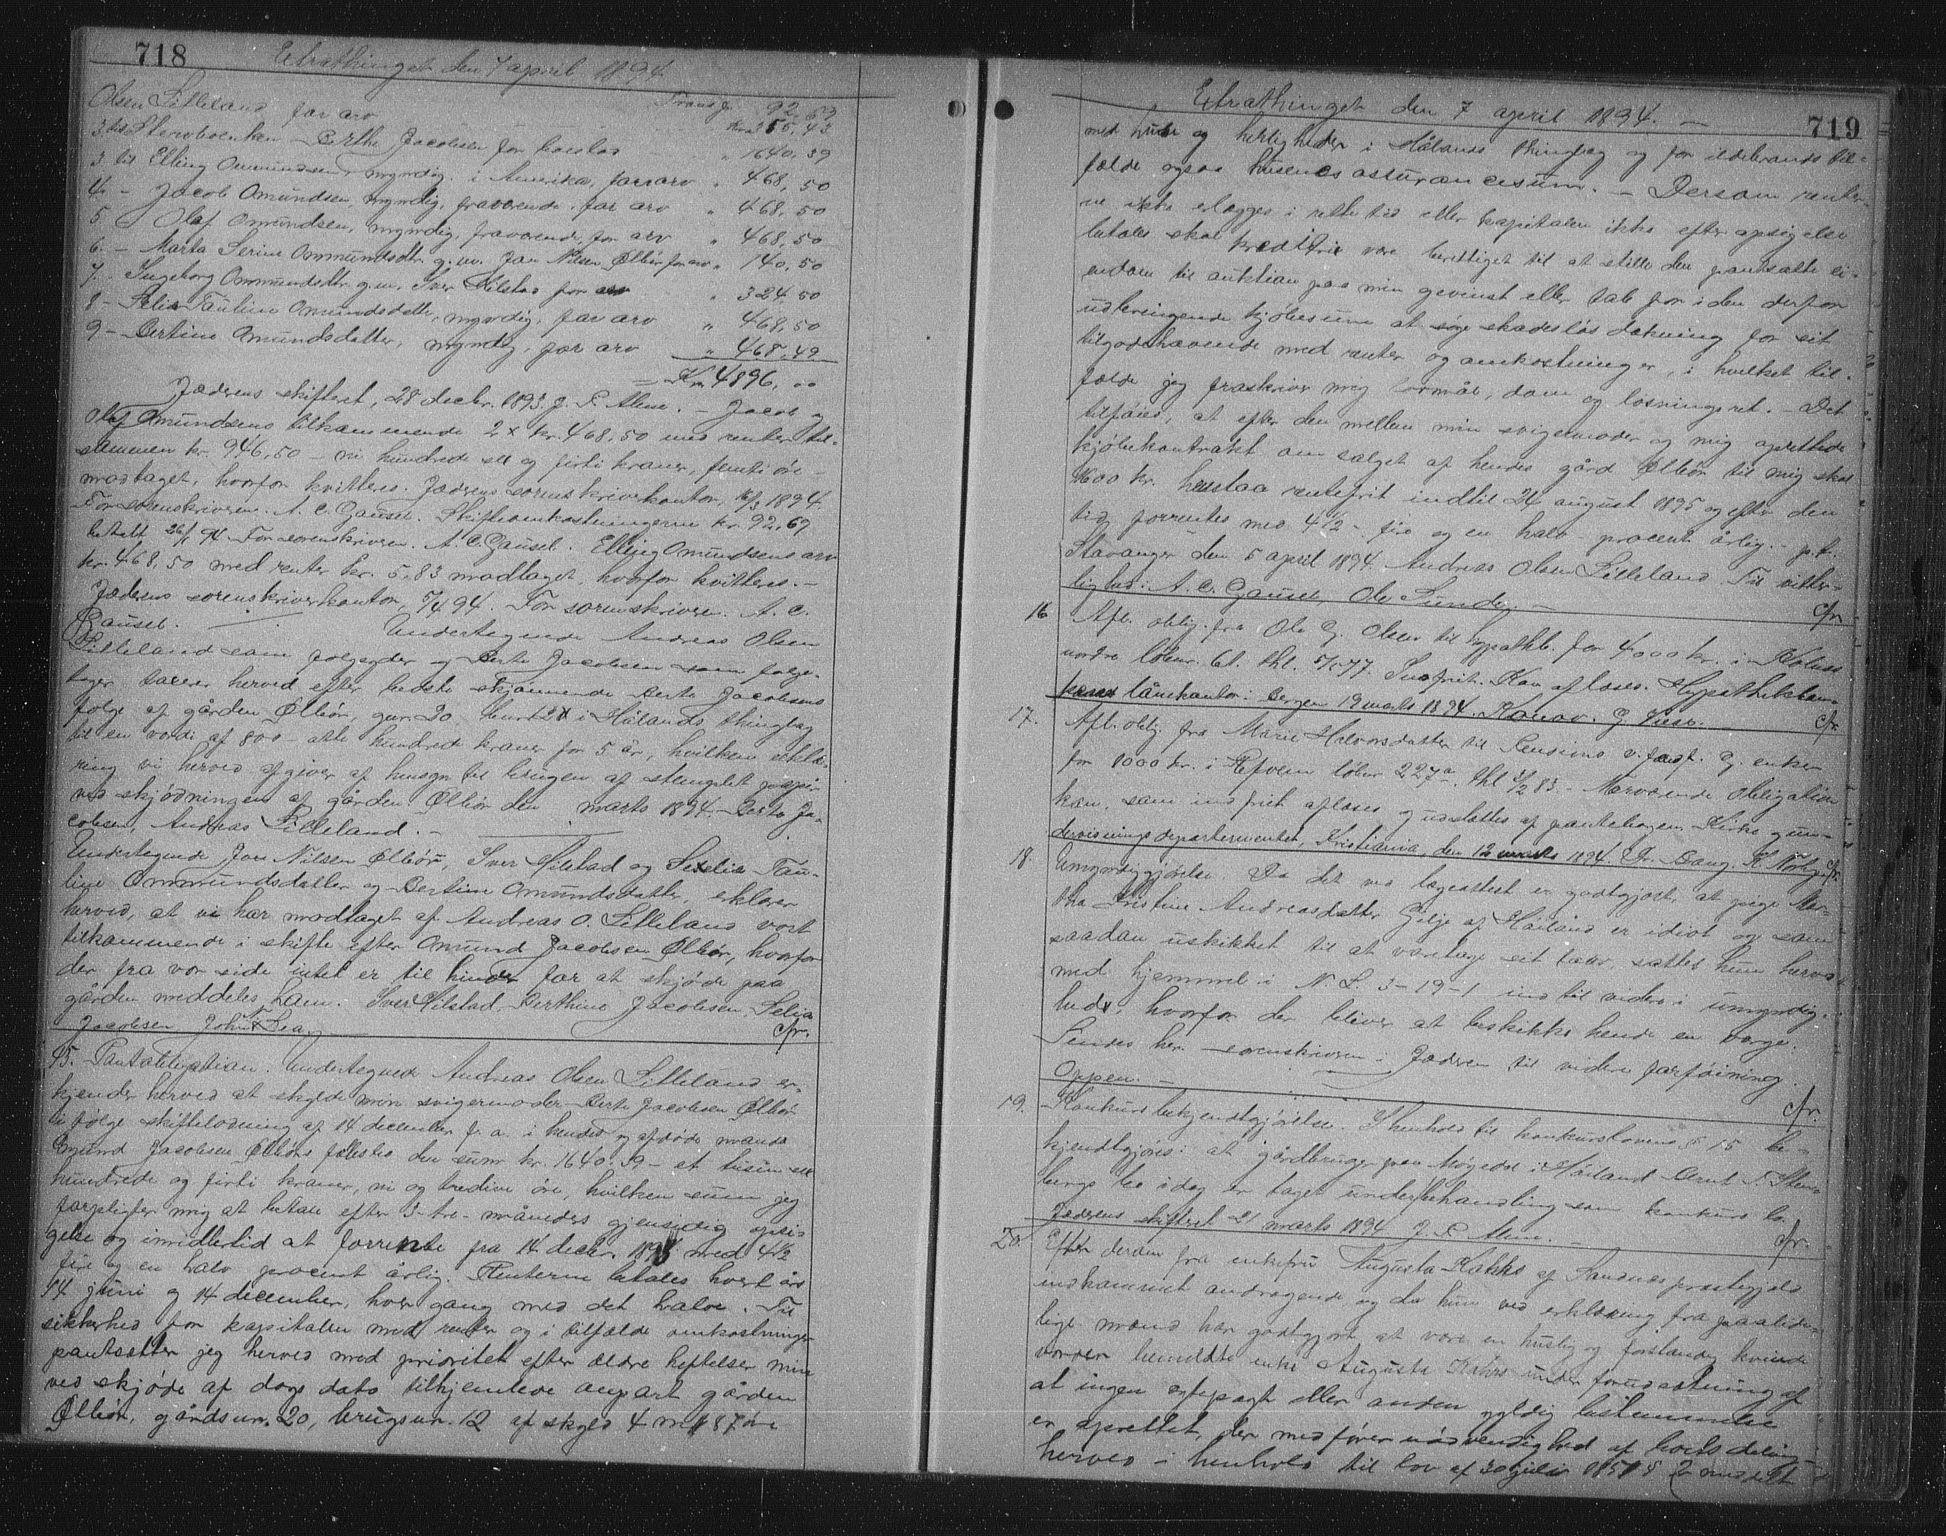 718
Extrathinget den 7 april 1894.
Transp. 92,69
Olsen Lilleland for arv
3. til Stervboenken Berthe Jacobsen for boeslod " 1640,39
3 til Elling Omundsen, myndig, i Amerika, for arv " 468,50
4 - Jacob Omundsen, myndig, fraværende, for arv " 468,50
5 - Olaf Omundsen, myndig, fraværende, for arv " 468,50
6. - Marta Serine Ommundsdtr. g.m. Jon Nilsen Ølbør for arv " 140,50
7. - Ingeborg Ommundsdtr. g.m. Iver Hilstad for arv " 324,50
8 - Selia Tauline Omundsdatter, myndig, for arv " 468,50
9 - Bertine Omundsdatter, myndig, for arv " 468,49
= Kr 4896,00
Jæderens skifteret, 28 decbr. 1893. J. P. Alme. - Jacob og
Olaf Omundsens tilkommende 2 x kr. 468,50 med renter til-
sammen kr. 946,50 - ni hundrede sex og firti kroner, femti øre -
modtaget, hvorfor kvitteres. Jæderens sorenskriverkontor, 16/3 1894.
For sorenskriveren. A. C. Gausel. Skifteomkostningerne kr. 92,69
betalt 26/1 94 For sorenskriveren. A. C. Gausel. Elling Omundsens arv
kr. 468,50 med renter kr. 5,83 modtaget, hvorfor kvitteres. -
Jæderens sorenskriverkontor, 5/4 94. For sorenskriveren. A. C.
Gausel. Undertegnede Andreas Olsen
Lilleland som folgeyder og Berte Jacobsen som folge-
tager taxerer herved efter bedste skjønnende Berte Jacobsens
folge af gården Ølbør, gnr. 20 bnr. 12 i Hålands thinglag
til en værdi af 800 - otte hundrede kroner for 5 år, hvilken erklæ-
ring vi herved afgiver af hensyn til brugen af stemplet papir
ved skjødningen af gården Ølbør den marts 1894. Berte Ja-
cobsen, Andreas Lilleland. -
Undertegnede Jon Nilsen Ølbør, Iver Hilstad og Selia Tau-
line Ommundsdatter og Bertine Omundsdatter, erklærer
herved, at vi har modtaget af Andreas O. Lilleland vort
tilkommende i skifte efter Omund Jacobsen Ølbør, hvorfor
der fra vor side intet er til hinder for at skjøde paa
gården meddeles ham. Iver Hilstad, Berthine Jacobsen, Selia
Jacobsen John N Lea, cfr.
15. Pantobligation. Undertegnede Andreas Olsen Lilleland er-
kjender herved at skylde min svigermoder Berte Jacobsen Ølbør
ifølge skifteslodning af 14 december f. a. i hendes og afdøde mands
Omund Jacobsen Ølbørs fællesbo den sum kr. 1640.39 - et tusin sex
hundrede og firti kroner, ni og tredive øre, hvilken sum jeg
forpligter mig at betale efter 3 - tre - måneders gjensidig opsi-
gelse og imidlertid at forrente fra 14 decbr. 1893 med 4½
fire og en halv procent årlig. Renterne betales hvert års
14 juni og 14 december, hver gang med det halve. Til
sikkerhed for kapitalen med renter og i tilfælde omkostninger
pantsætter jeg herved med prioritet efter ældre heftelser min
ved skjøde af dags dato tilhjemlede anpart gården
Ølbør, gårdsnr. 20, brugsnr. 12 af skyld 4 mk 87 øre
719
Extrathinget den 7 april 1894. -
med huse og herligheder i Hålands thinglag og for ildebrands til-
fælde ogsaa husenes assurancesum. - Dersom renter-
ne ikke erlægges i rette tid eller kapitalen ikke efter opsigelse
betales skal kreditrix være berettiget til at stille den pantsatte ei-
endom til auktion paa min gevinst eller tab for i den derfor
udbringende kjøbesum at søge skadesløs dækning for sit
tilgodehavende med renter og omkostninger, i hvilket til-
fælde jeg fraskriver mig lovmål, dom og løsningsret. - Det
tilføies, at efter den mellem min svigermoder og mig oprettede
kjøbekontrakt om salget af hendes gård Ølbør til mig skal
1600 kr. henstaa rentefrit indtil 24 august 1895 og efter den
tid forrentes med 4½ - fire og en halv - procent årlig. - p. t.
Stavanger den 5 april 1894. Andreas Olsen Lilleland. Til vitter-
lighed: A. C. Gausel, Ole Sunde, - cfr.
16 Afl. oblig. fra Ole G. Olsen til hypothb. for 4000 kr. i
nordre løbnr. 61. thl. 5/5 77. Indfriet. Kan aflæses. Hypothekban-
kens lånekontor i Bergen 19 marts 1894. cfr.
17. Afl. oblig. fra Marie Halvorsdatter til v. for
for 1000 kr. i løbnr. 227a thl 3/2 83. - Nærværende obligation
kan som indfriet aflæses og udslettes af pantebogen. Kirke og un-
dervisningsdepartementet, Kristiania, den 12 marts 1894. cfr.
18. Umyndiggjørelse. Da det ved lægeattest er godtgjort, at pige Mar-
tha Kristine Andreasdatter Gilje af Håland er idiot og som
saadan uskikket til at varetage sit tarv, sættes hun herved
med hjemmel i N. L. 3-19-1 indtil videre i umyndig-
hed, hvorfor der bliver at beskikke hende en værge.
Sendes hr. sorenskriveren i Jæderen til videre forføining.
Oppen. - cfr.
19. Konkursbekjendtgjørelse. I henhold til konkurslovens § 15 be-
kjendtgjøres: at gårdbruger paa Møgedal i Håland Bernt T. Sten-
bergs bo idag er taget under behandling som konkursbo.
Jæderens skifteret 21 marts 1894 J. P. Alme. - cfr.
20. Efter derom fra enkefru Augusta Kahrs af Sandnes præstegjeld
indkommet andragende og da hun ved erklæring fra paalide-
lige mænd har godtgjort at være en huslig og forstandig kvinde
vorder bemeldte enke Augusta Kahrs under forudsætning af
at ingen egtepagt eller anden gyldig bestemmelse
er oprettet, der medfører nødvendighed af boets deling
herved i henhold til lov af 30 juli 1851 § 2 meddelt